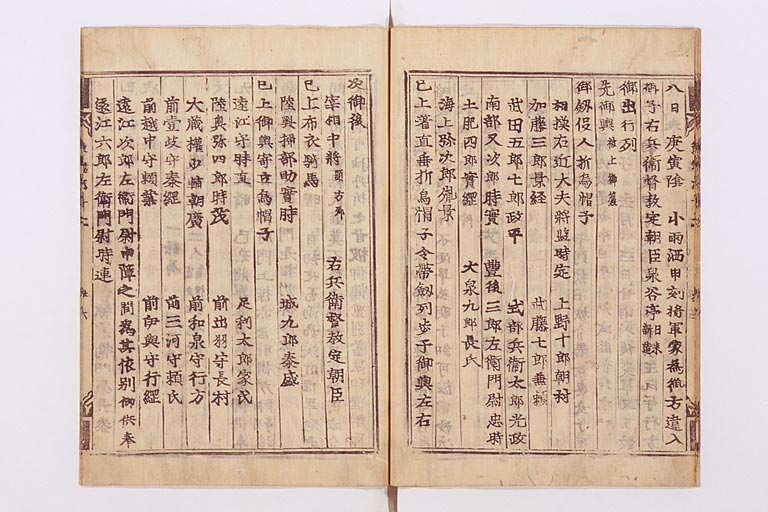 八日 庚寅陰 小雨洒申刻將軍家為御方違入
御于右兵衛督教定朝臣泉谷亭
御出行列
先御輿 被上御簾
御劔役人折烏帽子
相摸右近大夫將監時定 上野十郎朝村
加藤三郎景經 武藤七郎兼頼
武田五郎七郎政平 式部兵衛太郎光政
南部又次郎時實 豐後三郎左衛門尉忠時
土肥四郎實經 大泉九郎長氏
海上弥次郎胤景
已上著直垂折烏帽子令帶劔列歩于御輿左右
次御後
宰相中將 顕方卿 右兵衛督教定朝臣
已上布衣騎馬
陸奥掃部助實時 城九郎泰盛
已上御輿寄立烏帽子
遠江守時直 足利太郎家氏
陸奥弥四郎時茂 前出羽守長村
大蔵權少輔朝廣 前和泉守行方
前壹岐守泰經 前三河守頼氏
前越中守頼業 前伊與守行經
遠江次郎左衛門尉 中障之間為其依別仰供奉
遠江六郎左衛門尉時連